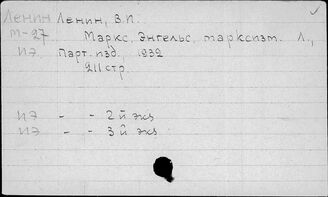 Ленин Ленин, В.И.
М-27. Маркс, Энгельс, марксизм. Л.,
ИЭ Парт. изд. 1932
211 стр.
ИЭ - - 2й экз
ИЭ - - 3й экз